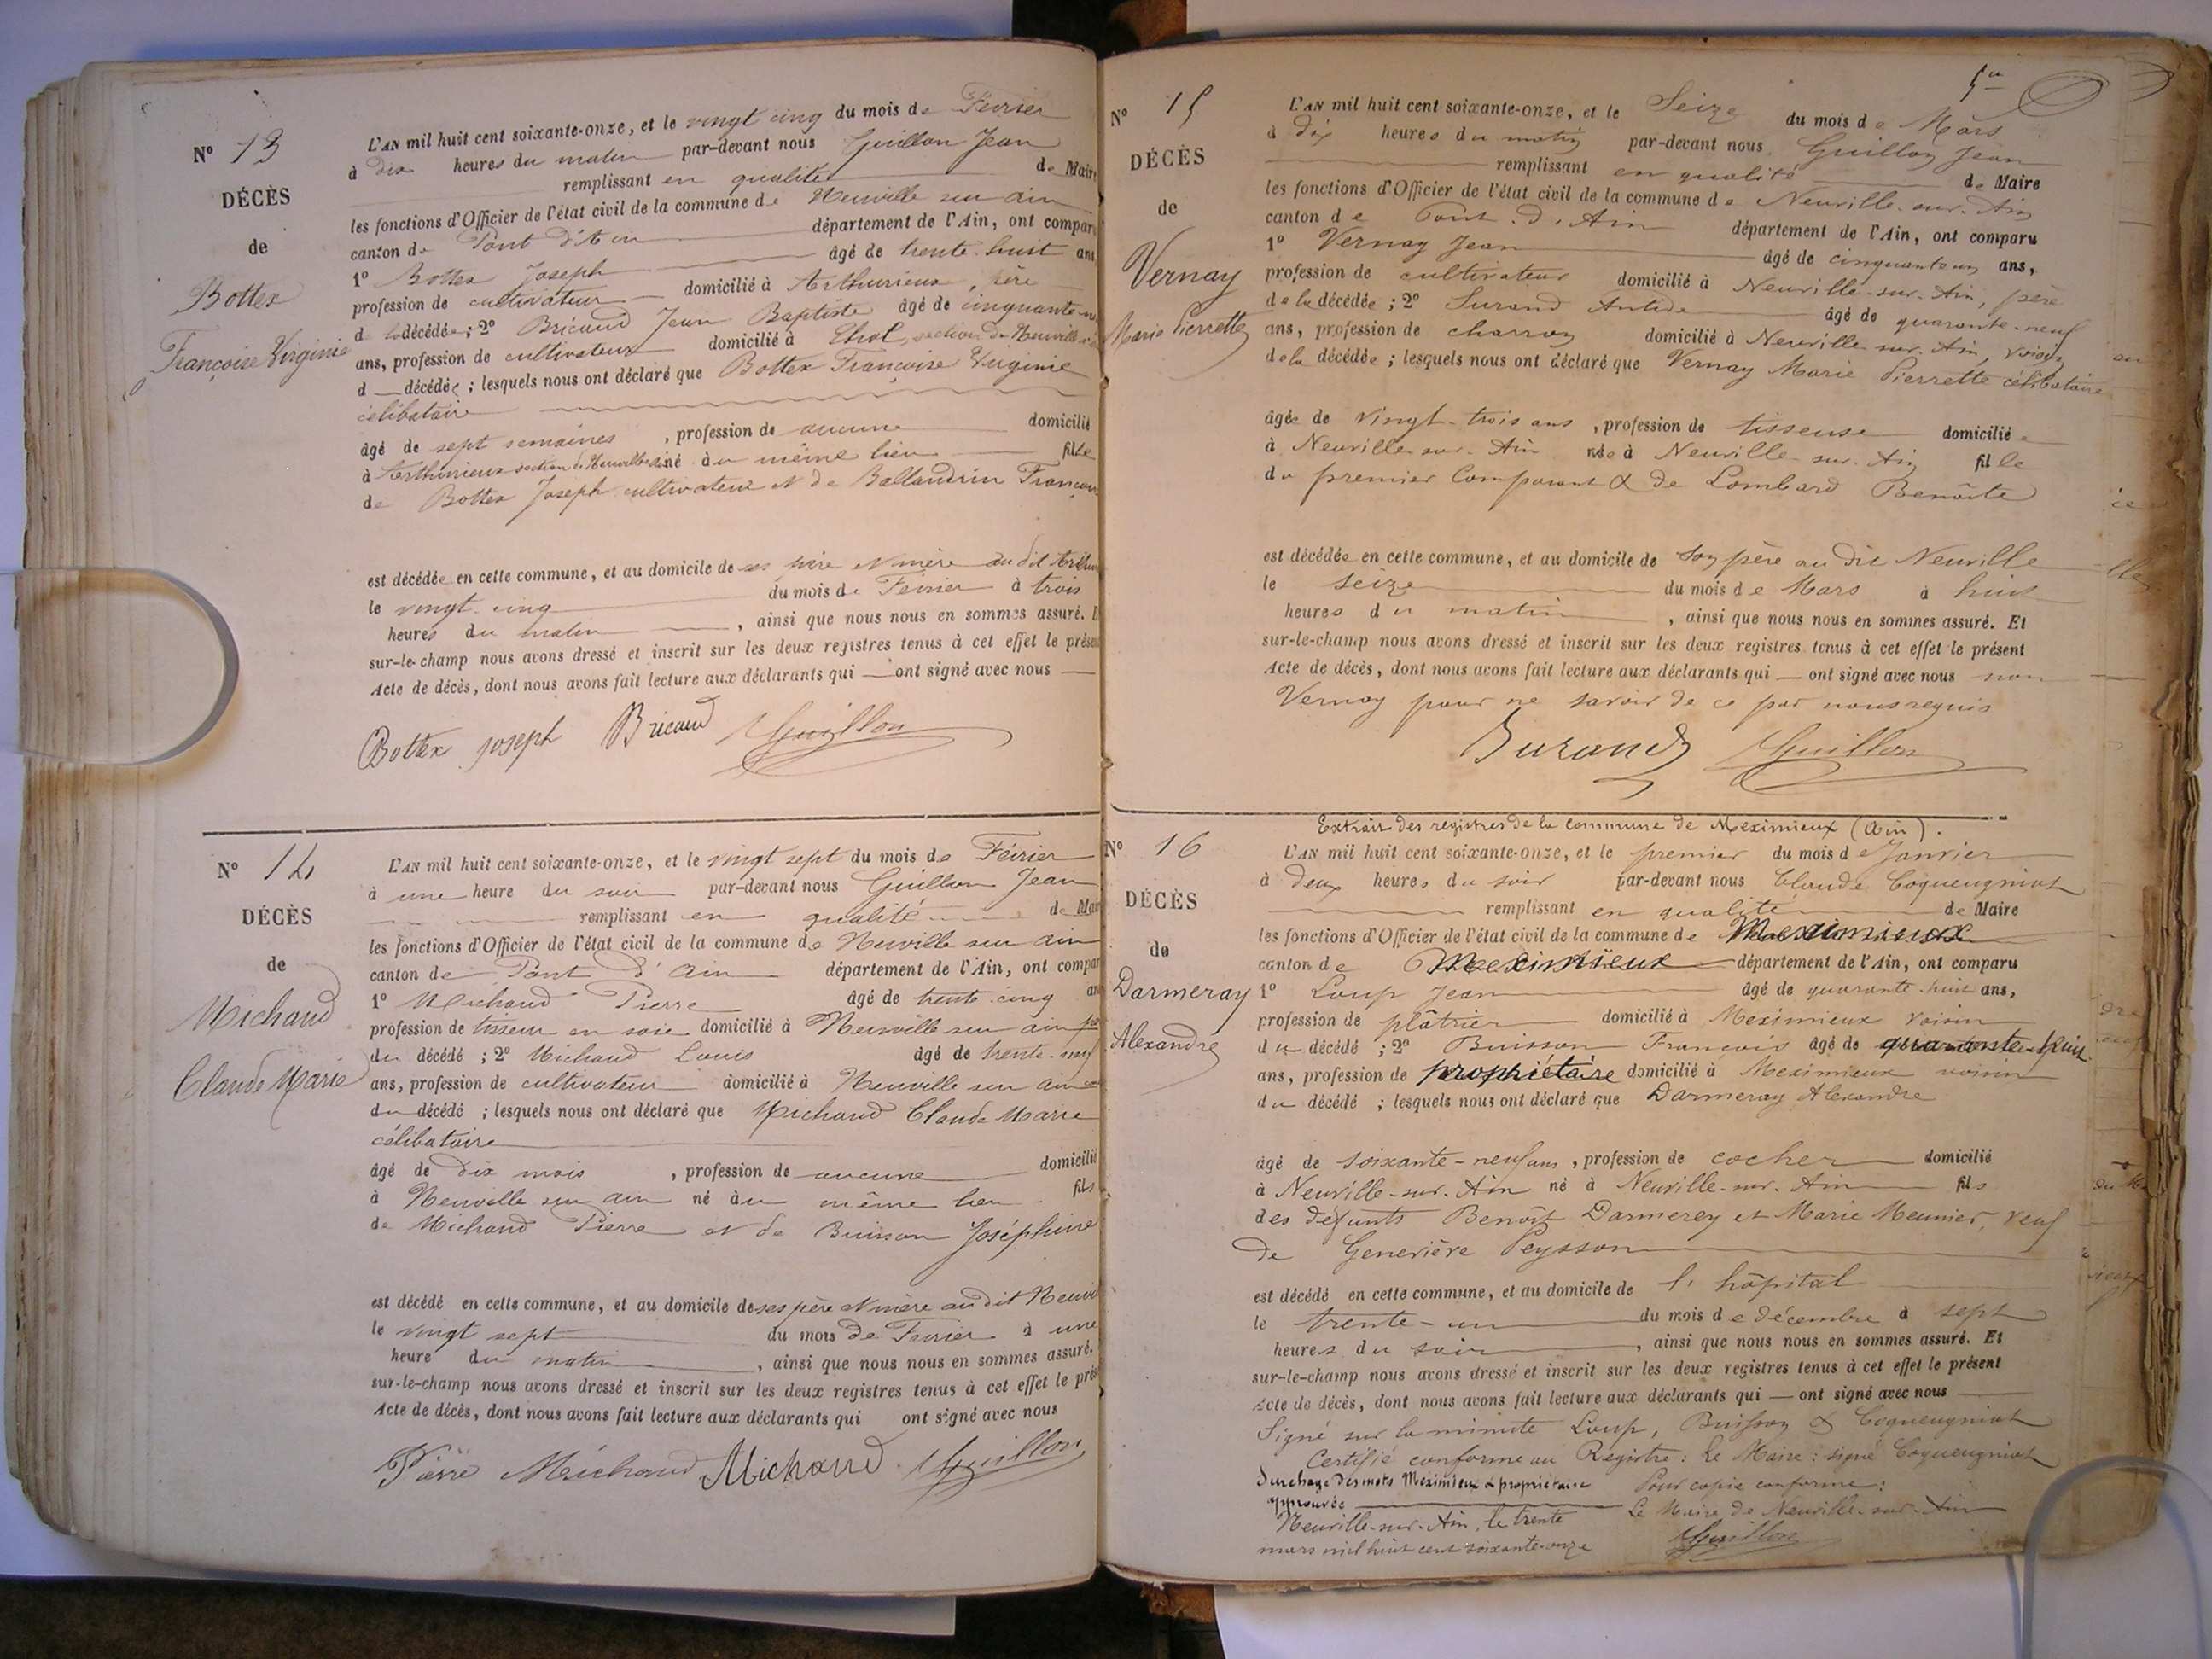 Nº 13
DÉCÈS
de
Bottex
Françoise Virginie
L'AN mil huit cent soixante-onze, et le vingt cinq du mois de Février
à dix heures du matin par-devant nous Guillon Jean
remplissant en qualité de Maire
les fonctions d'Officier de l'état civil de la commune de Neuville sur ain
canton de Pont d'Ain département de l'Ain, ont compar
1º Bottex Joseph âgé de trente-huit ans
profession de cultivateur domicilié à Arthurieux, père
de la décédée; 2º Bricaud Jean Baptiste âgé de cinquante
ans, profession de cultivateur domicilié à Thol, section de Neuville
d décédée; lesquels nous ont déclaré que Bottex Françoise Virginie
célibataire
âgé de sept semaines, profession de aucune domicilié
à Arthurieux section de Neuville né au même lieu fille
de Bottex Joseph cultivateur et de Ballandrin
est décédée en cette commune, et au domicile de ses père et mère au dit
le vingt-cinq du mois de Février à trois
heures du matin, ainsi que nous nous en sommes assuré.
sur-le-champ nous avons dressé et inscrit sur les deux registres tenus à cet effet le prése
Acte de décès, dont nous avons fait lecture aux déclarants qui ont signé avec nous
Bottex joseph Bricaud Guillon
Nº 14
DÉCÈS
de
Michaud
Claude Marie
L'AN mil huit cent soixante-onze, et le vingt sept du mois de Février
à une heure du soir par-devant nous Guillon Jean
remplissant en qualité de Mai
les fonctions d'Officier de l'état civil de la commune de Neuville sur ain
canton de Pont d'ain département de l'Ain, ont compar
1º Michaud Pierre âgé de trente-cinq an
profession de tisseur en soie domicilié à Neuville sur ain
du décédé; 2º Michaud Louis âgé de trente-neuf
ans, profession de cultivateur domicilié à Neuville sur ain
du décédé; lesquels nous ont déclaré que Michaud Claude Marie
célibataire
âgé de dix mois, profession de aucune domicilié
à Neuville sur ain né au même lieu fils
de Michaud Pierre et de Buisson Joséphine
est décédé en cette commune, et au domicile de ses père et mère au dit Neuvil
le vingt sept du mois de Février à une
heure du matin, ainsi que nous nous en sommes assuré.
sur-le-champ nous avons dressé et inscrit sur les deux registres tenus à cet effet le prés
Acte de décès, dont nous avons fait lecture aux déclarants qui ont signé avec nous
Pierre Michaud Michaud Guillon
5
Nº 15
DÉCÈS
de
Vernay
Marie Pierrette
L'AN mil huit cent soixante-onze, et le Seize du mois de Mars
à dix heures du matin par-devant nous Guillon Jean
remplissant en qualité de Maire
les fonctions d'Officier de l'état civil de la commune de Neuville-sur-Ain
canton de Pont-d'Ain département de l'Ain, ont comparu
1º Vernay Jean âgé de cinquante un ans,
profession de cultivateur domicilié à Neuville-sur-Ain, père
de la décédée; 2º Durand Antide âgé de quarante-neuf
ans, profession de charron domicilié à Neuville-sur-Ain, voisin
de la décédée; lesquels nous ont déclaré que Vernay Marie Pierrette célibataire
âgée de vingt-trois ans, profession de tisseuse domiciliée
à Neuville-sur-Ain née à Neuville-sur-Ain fille
du premier Comparant & de Lombard Benoîte
est décédée en cette commune, et au domicile de son père au dit Neuville
le seize du mois de Mars à huit
heures du matin, ainsi que nous nous en sommes assuré. Et
sur-le-champ nous avons dressé et inscrit sur les deux registres tenus à cet effet le présent
Acte de décès, dont nous avons fait lecture aux déclarants qui ont signé avec nous non
Vernay pour ne savoir de ce par nous requis
Durand Guillon
Nº 16
DÉCÈS
de
Darmeray
Alexandre
Extrait des registres de la commune de Meximieux (Ain).
L'AN mil huit cent soixante-onze, et le premier du mois de Janvier
à deux heures du soir par-devant nous Claude Coqueugniot
remplissant en qualité de Maire
les fonctions d'Officier de l'état civil de la commune de Meximieux
canton de Meximieux département de l'Ain, ont comparu
1º Loup Jean âgé de quarante-huit ans,
profession de plâtrier domicilié à Meximieux voisin
du décédé; 2º Buisson François âgé de quarante-huit
ans, profession de propriétaire domicilié à Meximieux voisin
du décédé; lesquels nous ont déclaré que Darmeray Alexandre
âgé de soixante-neuf ans, profession de cocher domicilié
à Neuville-sur-Ain né à Neuville-sur-Ain fils
des défunts Benoît Darmerey et Marie Meunier, veuf
de Geneviève Peysson
est décédé en cette commune, et au domicile de l'hôpital
le trente-un du mois de décembre à sept
heures du soir, ainsi que nous nous en sommes assuré. Et
sur-le-champ nous avons dressé et inscrit sur les deux registres tenus à cet effet le présent
Acte de décès, dont nous avons fait lecture aux déclarants qui ont signé avec nous
Signé sur la minute Loup, Buisson & Coqueugniot
Certifié conforme au Registre: Le Maire: signé Coqueugniot
Surchage des mots Meximieux & propriétaire
approuvée
Pour copie conforme:
Le Maire de Neuville-sur-Ain
Neuville-sur-Ain, le trente
mars mil huit cent soixante-onze
Guillon